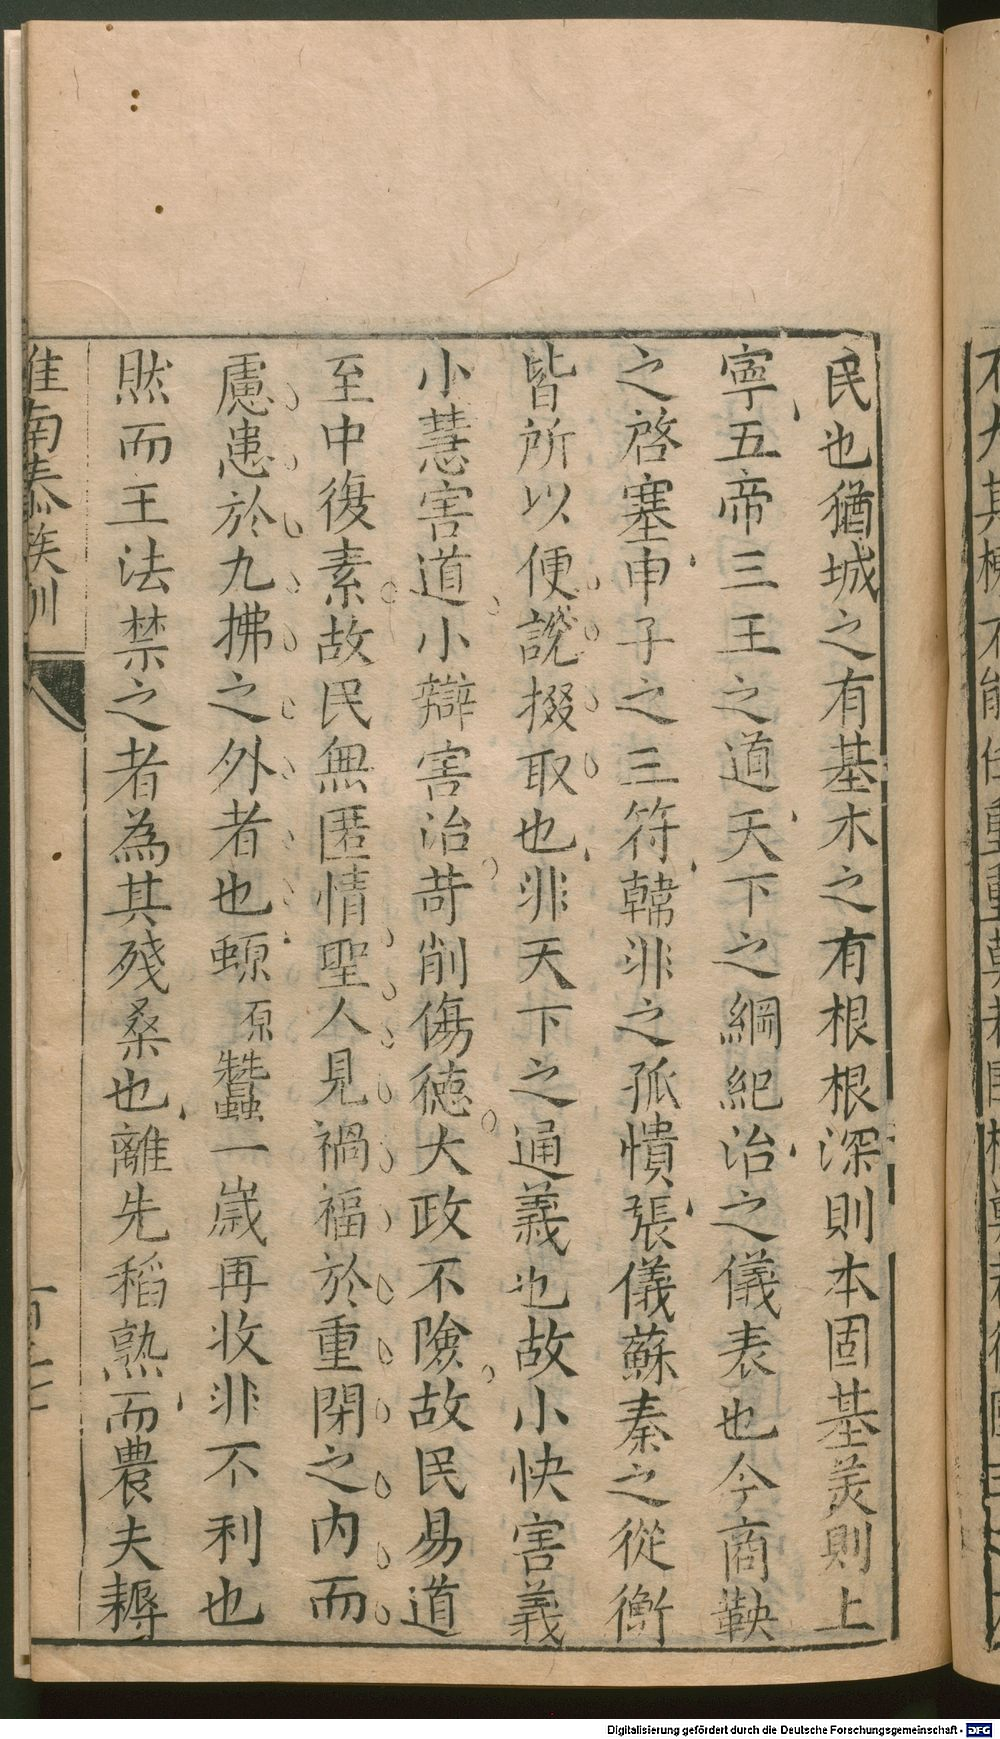 民也猶城之有基木之有根根深則本固基美則上
寧五帝三王之道天下之綱紀治之儀表也今商鞅
之啓塞申子之三符韓非之孤憤張儀蘇秦之從衡
皆所以便說掇取也非天下之通義也故小快害義
小慧害道小辯害治苛削傷德大政不險故民易道
至中復素故民無匿情聖人見禍福於重閉之内而
慮患於九拂之外者也螈原蠶一歲再收非不利也
然而王法禁之者為其殘桑也離先稻熟而農夫耨
淮南泰族訓
Digitalisierung gefördert durch die Deutsche Forschungsgemeinschaft - DFG